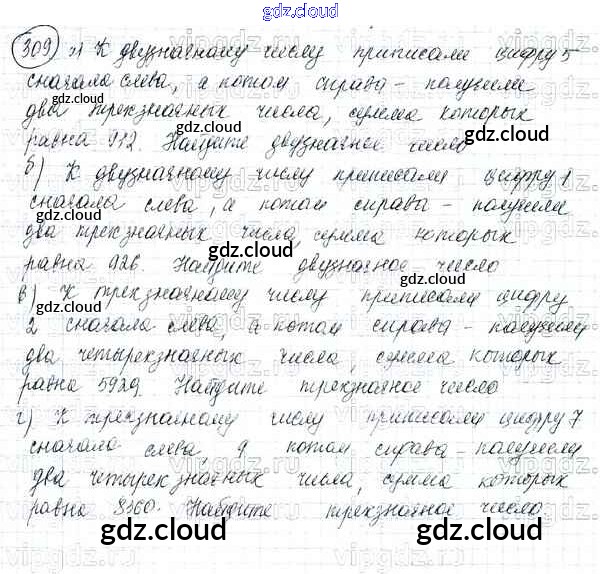 gdz.cloud
309 а) К двузначному числу приписали цифру 5
сначала слева, а потом справа – получили
два трехзначных числа, сумма которых
равна 912. Найдите двузначное число
б) К двузначному числу приписали цифру 1
сначала слева, а потом справа – получили
два трехзначных числа, сумма которых
равна 926. Найдите двузначное число
в) К трехзначному числу приписали цифру
2 сначала слева, а потом справа – получили
два четырехзначных числа, сумма которых
равна 5929. Найдите трехзначное число
г) К трехзначному числу приписали цифру 7
сначала слева, а потом справа – получили
два четырехзначных числа, сумма которых
равна 8360. Найдите трехзначное число.
gdz.cloud